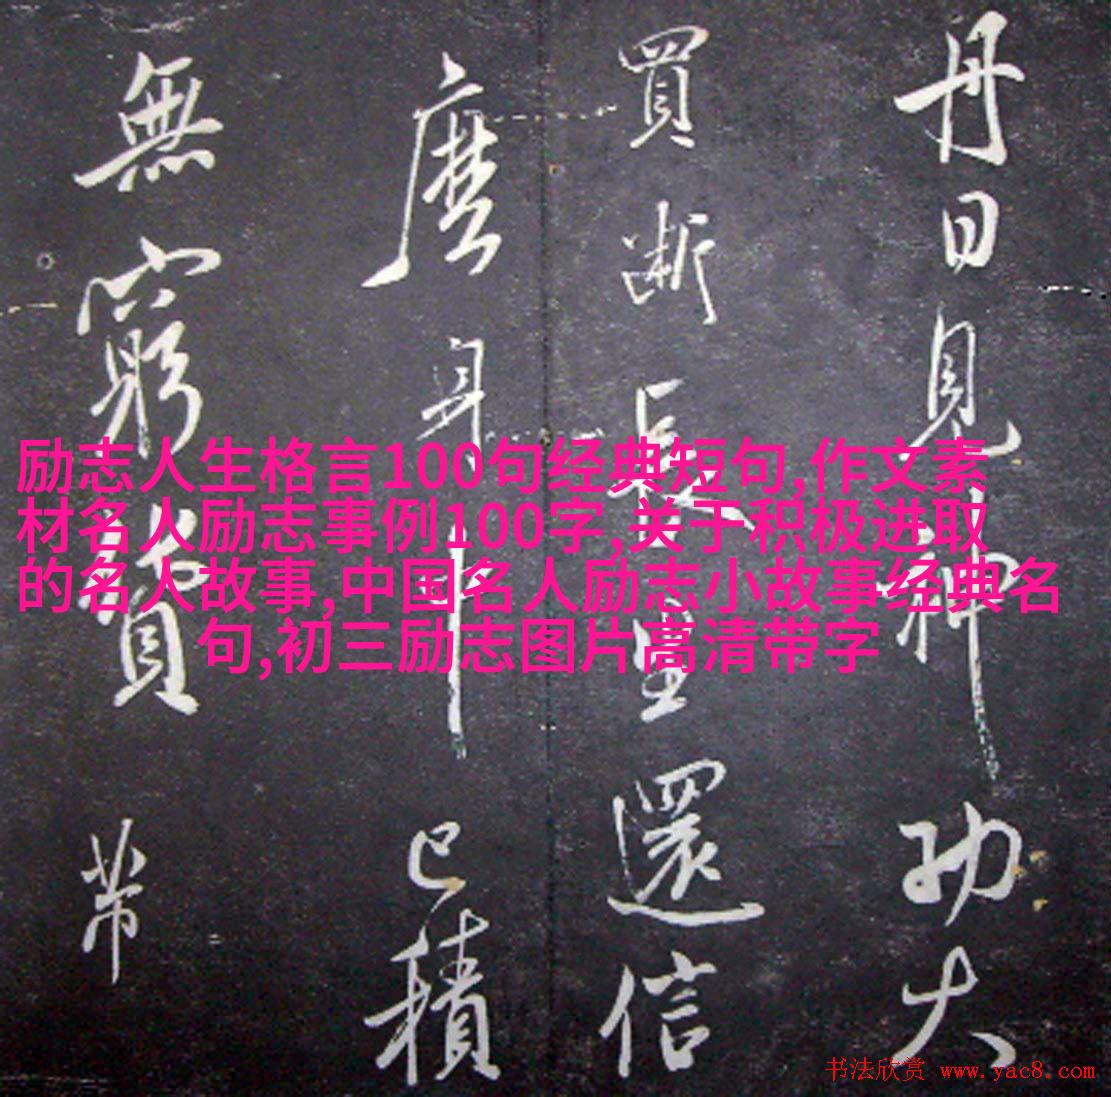 丹日見神功大
買斷長生還信
身中已積
無窮帶
励志人生格言100句经典短句,作文素
材名人励志事例100字,关于积极进取
的名人故事,中国名人励志小故事经典名
句,初三励志图片高清带字
书法欣赏 www.yac8.com